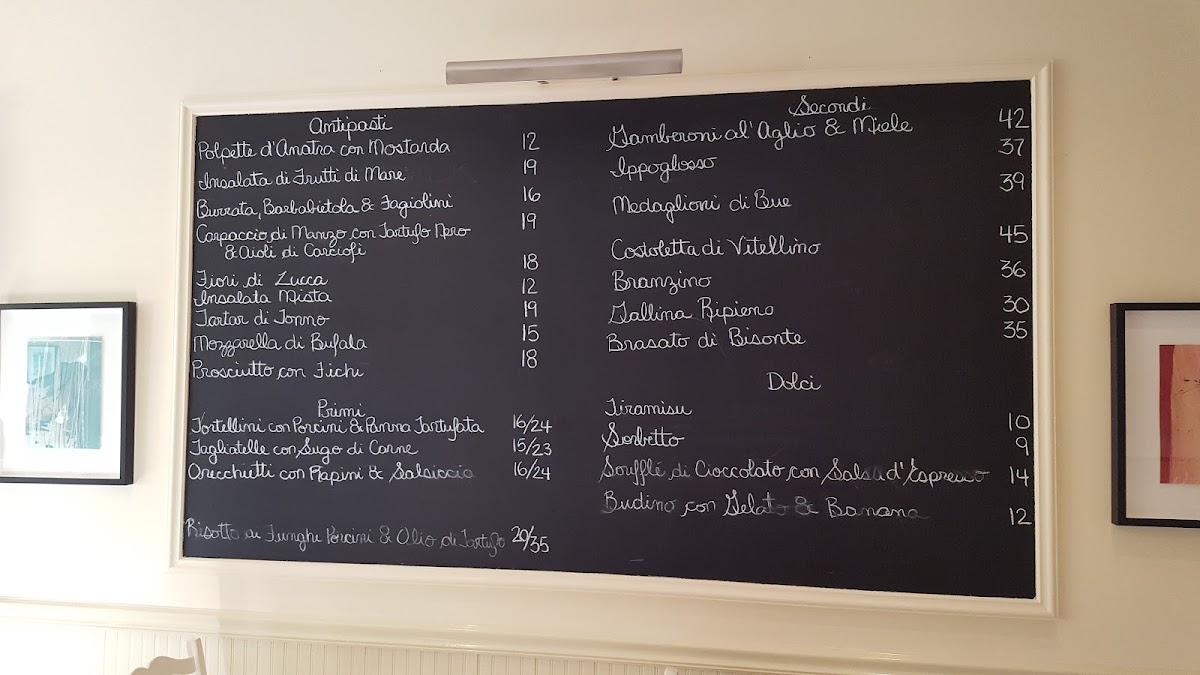 Antipasti
Polpette d'Anatra con Mostarda 12
Insalata di Frutti di Mare 19
Burrata, Barbabietola & Fagiolini 16
Carpaccio di Manzo con Tartufo Nero 19
& Aioli di Carciofi
Fiori di Zucca 18
Insalata Mista 12
Tartar di Tonno 19
Mozzarella di Bufala 15
Prosciutto con Fichi 18
Primi
Tortellini con Porcini & Panna Tartufata 16/24
Tagliatelle con Sugo di Carne 15/23
Orecchietti con Rapini & Salsiccia 16/24
Risotto ai Funghi Porcini & Olio di Tartufo 20/35
Secondi
Gamberoni al'Aglio & Miele 42
Ippoglosso 37
Medaglioni di Bue 39
Costoletta di Vitellino 45
Branzino 36
Gallina Ripieno 30
Brasato di Bisonte 35
Dolci
Tiramisu 10
Sorbetto 9
Soufflé di Cioccolato con Salsa d'Espresso 14
Budino con Gelato & Banana 12